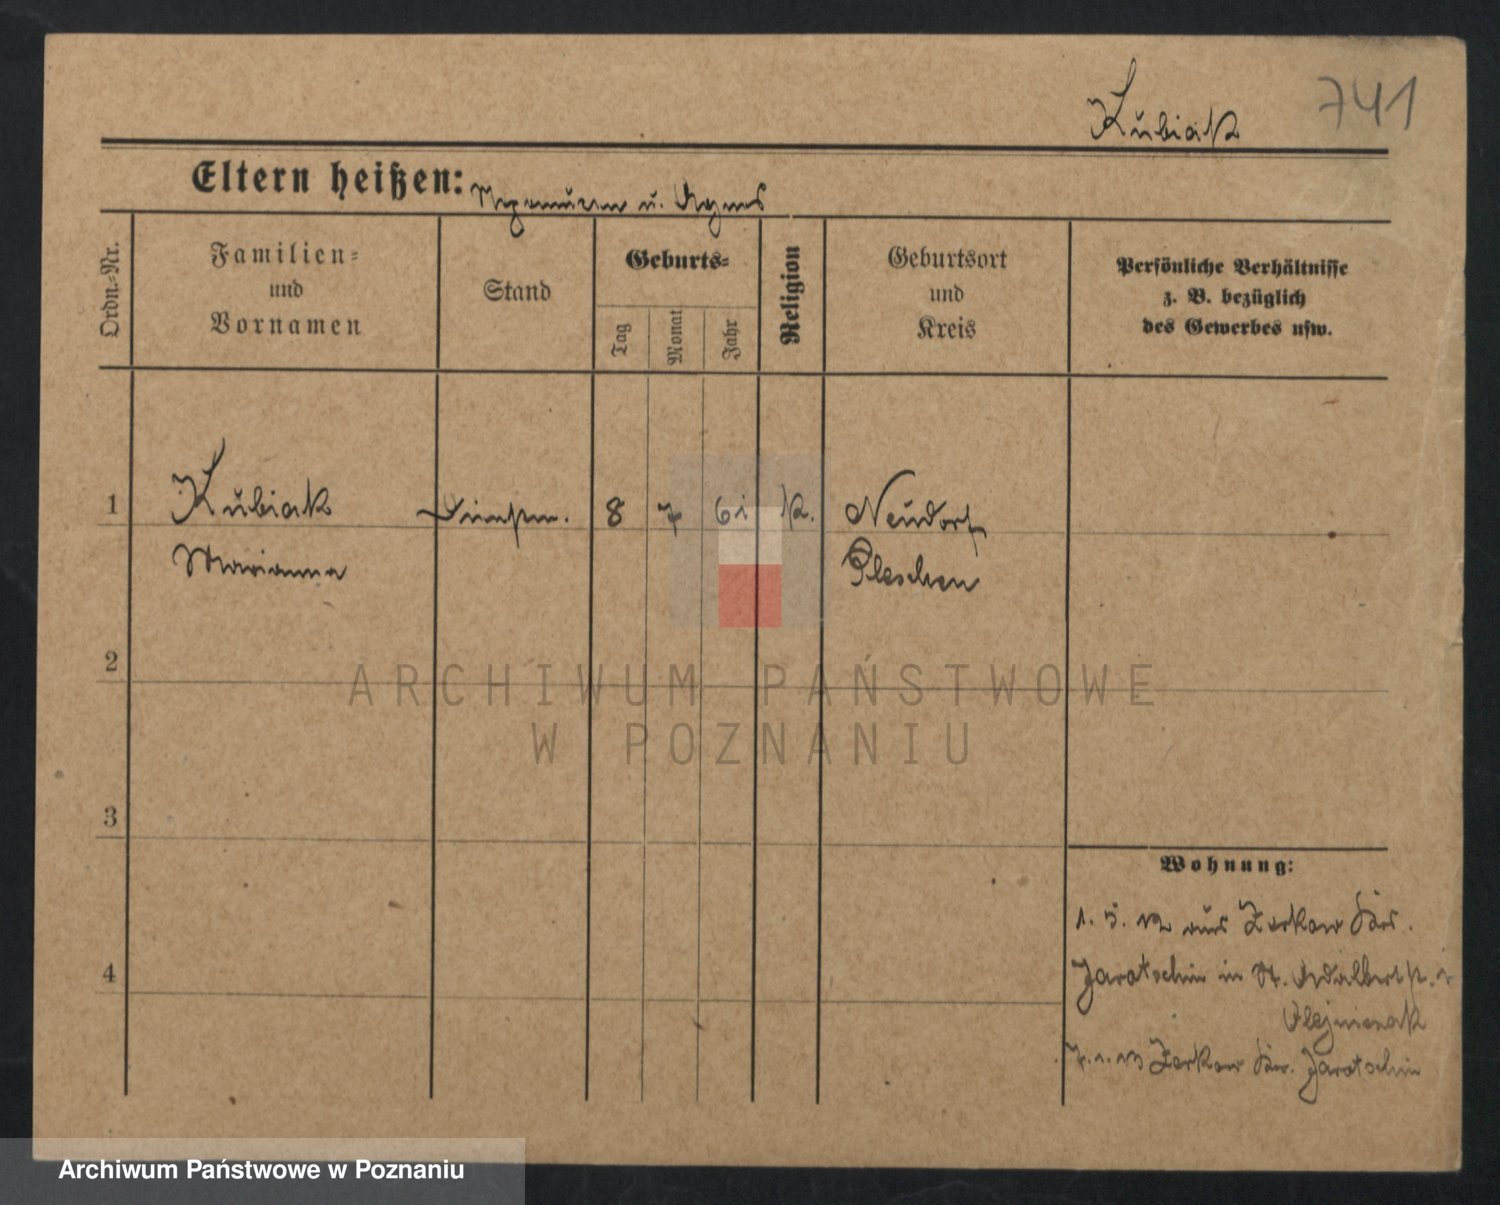 741
Kubiak
Eltern heißen: u. Agnes
Ordn.-Nr.
Familien-
und
Vornamen
Stand
Geburts-
Tag
Monat
Jahr
Religion
Geburtsort
und
Kreis
Persönliche Verhältnisse
z. B. bezüglich
des Gewerbes usw.
1
Kubiak
Marianna
8
7
61
k.
Neudorf
Pleschen
2
3
4
Wohnung:
1. 5. 12 aus Zerkow Krs.
Jaratschin in St. Adalbertst.
Olejniczak
7. 1. 13 Zerkow Kr. Jarotschin
ARCHIWUM PAŃSTWOWE
W POZNANIU
Archiwum Państwowe w Poznaniu